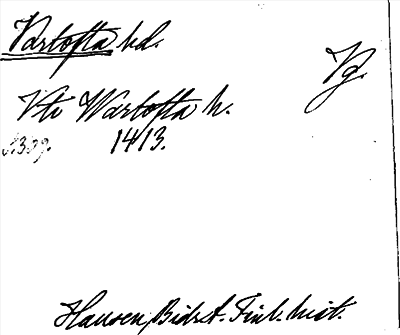 Vartofta hd.
Vg.
Vti Wartofta h.
1413.
Hausen, Bidr. t. Finl. hist.